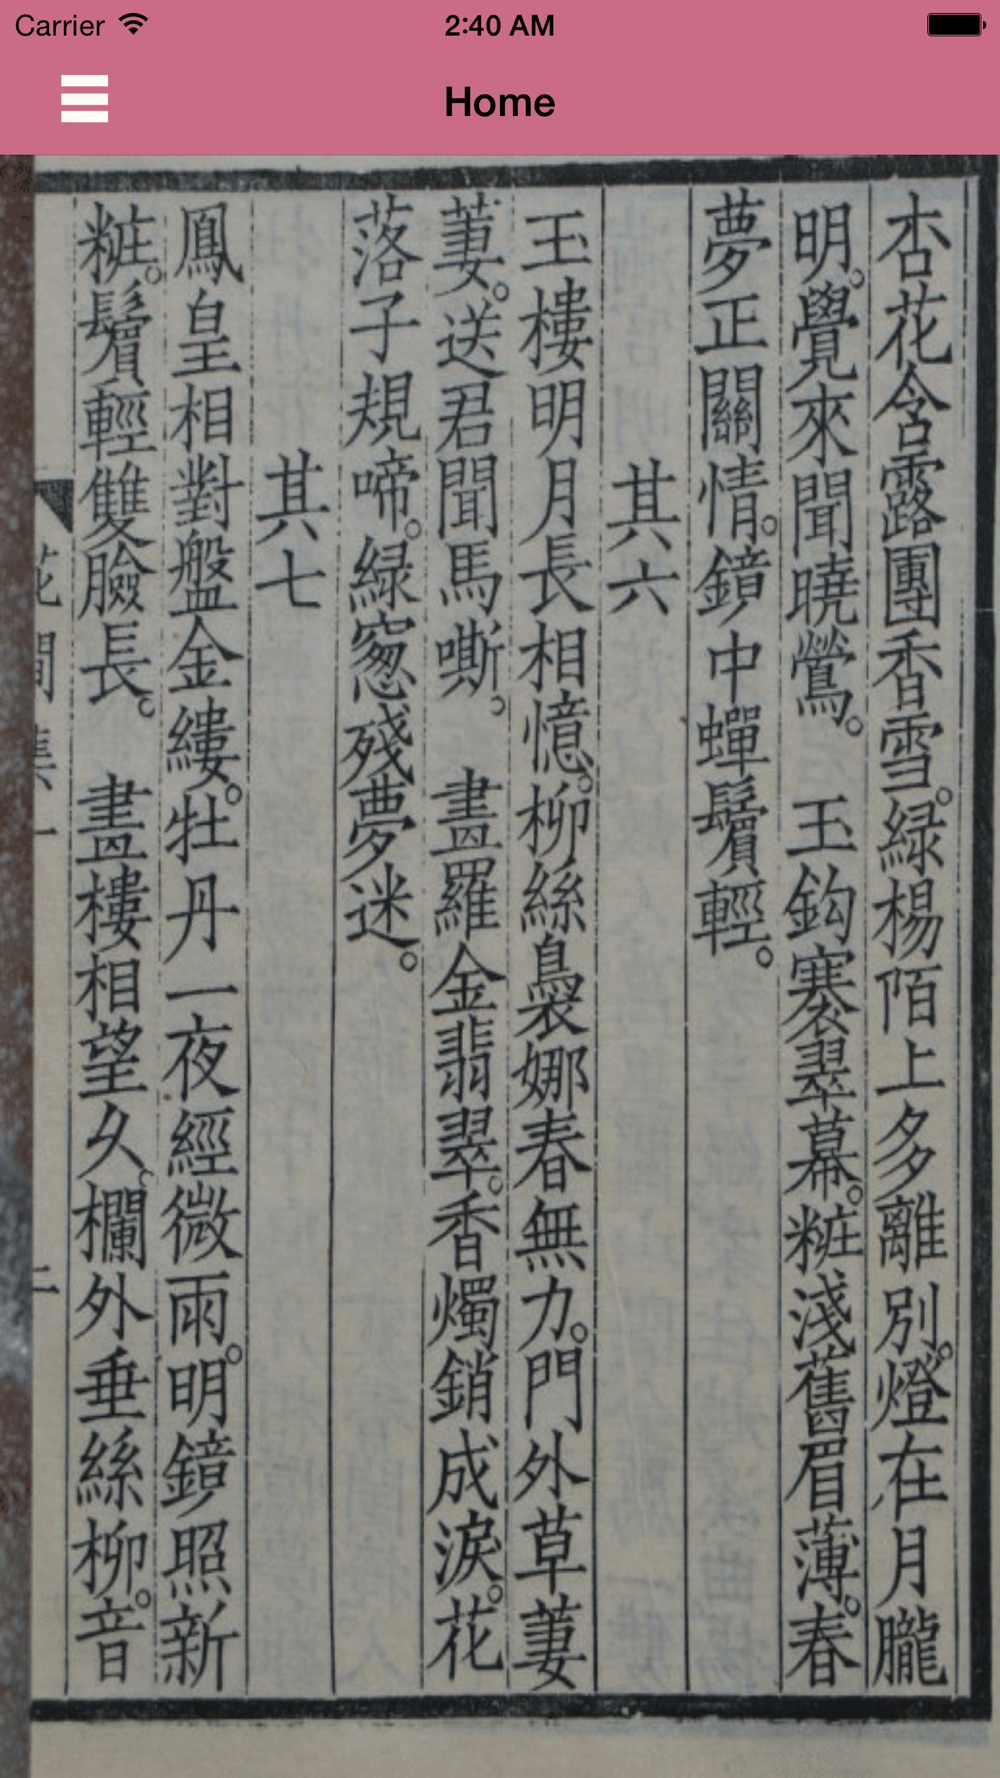 Carrier
2:40 AM
Home
杏花含露團香雪。緑楊陌上多離別。燈在月朧
明。覺來聞曉鶯。　玉鈎褰翠幕。粧淺舊眉薄。春
夢正關情。鏡中蟬鬢輕。
其六
玉樓明月長相憶。柳絲裊娜春無力。門外草萋
萋。送君聞馬嘶。　畫羅金翡翠。香燭銷成淚。花
落子規啼。緑窓殘夢迷。
其七
鳳皇相對盤金縷。牡丹一夜經微雨。明鏡照新
粧。鬢輕雙臉長。　畫樓相望久。欄外垂絲柳。音
花間集一
二